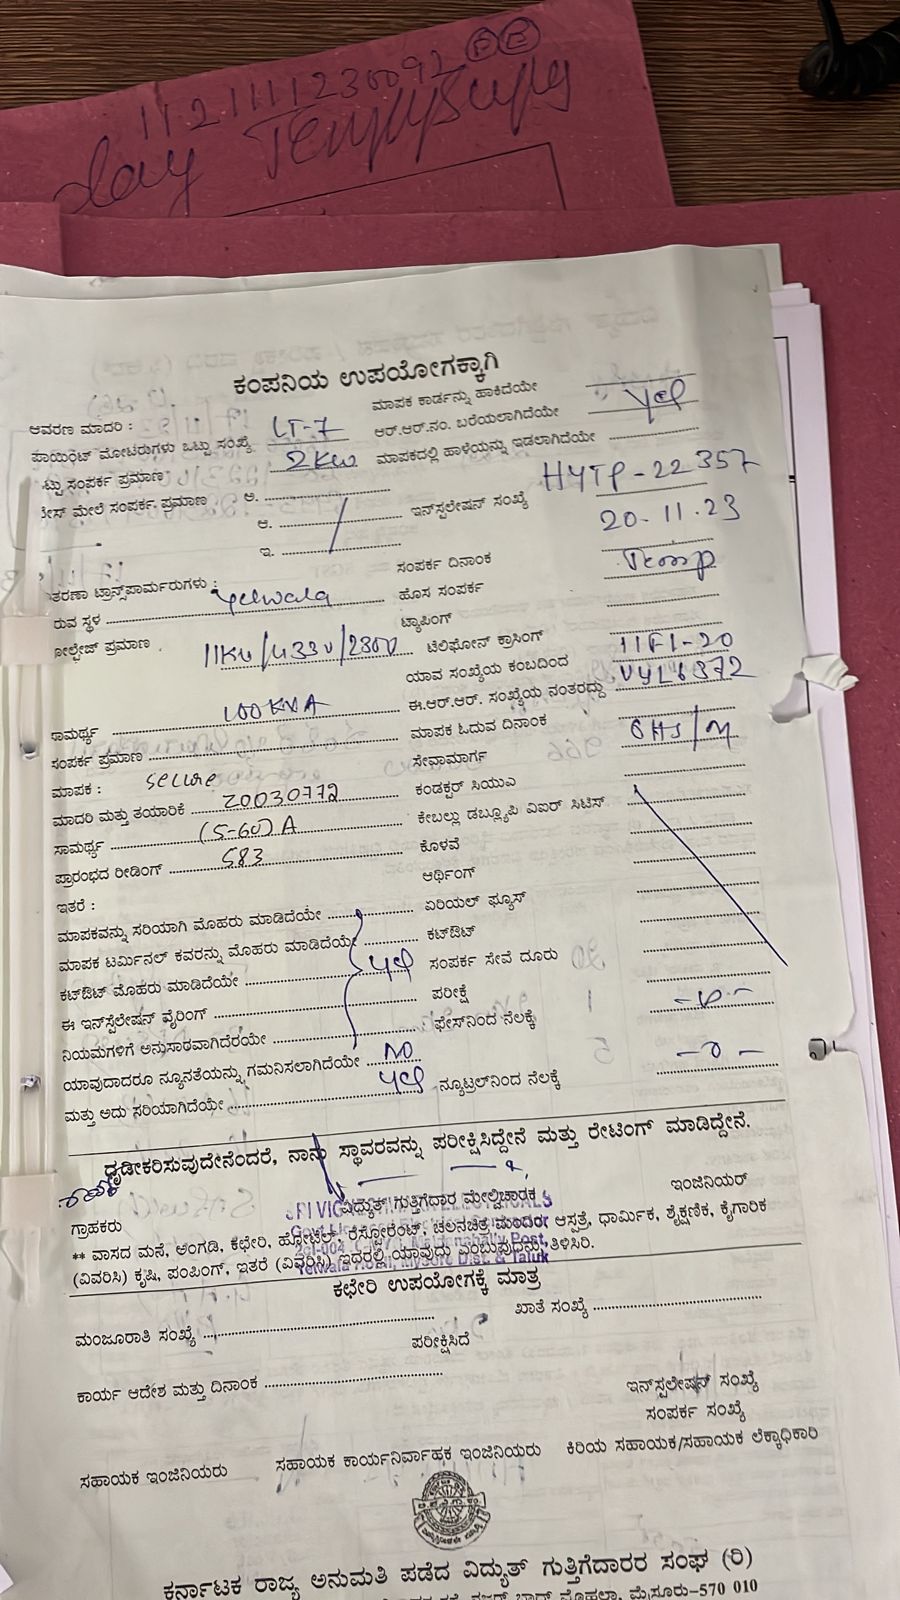 11211111230092 FE
ಕಂಪನಿಯ ಉಪಯೋಗಕ್ಕಾಗಿ
ಆವರಣ ಮಾದರಿ : LT-7 ಮಾಪಕ ಕಾರ್ಡನ್ನು ಹಾಕಿದೆಯೇ
ಪಾಯಿಂಟ್ ಮೋಟರುಗಳು ಒಟ್ಟು ಸಂಖ್ಯೆ 2KW ಆರ್.ಆರ್.ನಂ. ಬರೆಯಲಾಗಿದೆಯೇ Yes
ಟ್ಟು ಸಂಪರ್ಕ ಪ್ರಮಾಣ ಮಾಪಕದಲ್ಲಿ ಹಾಳೆಯನ್ನು ಇಡಲಾಗಿದೆಯೇ
ೇಸ್ ಮೇಲೆ ಸಂಪರ್ಕ ಪ್ರಮಾಣ ಅ. ಇನ್‌ಸ್ಪಲೇಷನ್ ಸಂಖ್ಯೆ HYTP-22357
ಆ.
ಇ. ಸಂಪರ್ಕ ದಿನಾಂಕ 20.11.23
ತರಣಾ ಟ್ರಾನ್ಸ್‌ಪಾರ್ಮರುಗಳು : ಹೊಸ ಸಂಪರ್ಕ Temp
ರುವ ಸ್ಥಳ Yelwala ಟ್ಯಾಪಿಂಗ್
ೋಲ್ಟೇಜ್ ಪ್ರಮಾಣ 11KV/433V/230V ಟೆಲಿಫೋನ್ ಕ್ರಾಸಿಂಗ್
ಯಾವ ಸಂಖ್ಯೆಯ ಕಂಬದಿಂದ 11F1-20
ಸಾಮರ್ಥ್ಯ 100KVA ಈ.ಆರ್.ಆರ್. ಸಂಖ್ಯೆಯ ನಂತರದ್ದು VYL6372
ಸಂಪರ್ಕ ಪ್ರಮಾಣ ಮಾಪಕ ಓದುವ ದಿನಾಂಕ
ಮಾಪಕ : secure ಸೇವಾಮಾರ್ಗ OHS/M
ಮಾದರಿ ಮತ್ತು ತಯಾರಿಕೆ 20030772 ಕಂಡಕ್ಟರ್ ಸಿಯುಎ
ಸಾಮರ್ಥ್ಯ (5-60)A ಕೇಬಲ್ಲು ಡಬ್ಲ್ಯೂಪಿ ವಿಐರ್ ಸಿಟಿಸ್
ಪ್ರಾರಂಭದ ರೀಡಿಂಗ್ 583 ಕೊಳವೆ
ಇತರೆ : ಆರ್ಥಿಂಗ್
ಮಾಪಕವನ್ನು ಸರಿಯಾಗಿ ಮೊಹರು ಮಾಡಿದೆಯೇ ಏರಿಯಲ್ ಫ್ಯೂಸ್
ಮಾಪಕ ಟರ್ಮಿನಲ್ ಕವರನ್ನು ಮೊಹರು ಮಾಡಿದೆಯೇ ಕಟ್‌ಔಟ್
ಕಟ್‌ಔಟ್ ಮೊಹರು ಮಾಡಿದೆಯೇ Yes ಸಂಪರ್ಕ ಸೇವೆ ದೂರು
ಈ ಇನ್‌ಸ್ಪೆಲೇಷನ್ ವೈರಿಂಗ್ ಪರೀಕ್ಷೆ
ನಿಯಮಗಳಿಗೆ ಅನುಸಾರವಾಗಿದೆರಯೇ ಫೇಸ್‌ನಿಂದ ನೆಲಕ್ಕೆ
ಯಾವುದಾದರೂ ನ್ಯೂನತೆಯನ್ನು ಗಮನಿಸಲಾಗಿದೆಯೇ NO
ಮತ್ತು ಅದು ಸರಿಯಾಗಿದೆಯೇ Yes ನ್ಯೂಟ್ರಲ್‌ನಿಂದ ನೆಲಕ್ಕೆ -0-
ಧೃಡೀಕರಿಸುವುದೇನೆಂದರೆ, ನಾನು ಸ್ಥಾವರವನ್ನು ಪರೀಕ್ಷಿಸಿದ್ದೇನೆ ಮತ್ತು ರೇಟಿಂಗ್ ಮಾಡಿದ್ದೇನೆ.
ಗ್ರಾಹಕರು ವಿದ್ಯುತ್ ಗುತ್ತಿಗೆದಾರ ಮೇಲ್ವಿಚಾರಕ ಇಂಜಿನಿಯರ್
** ವಾಸದ ಮನೆ, ಅಂಗಡಿ, ಕಛೇರಿ, ಹೋಟೆಲ್, ರೆಸ್ಟೋರೆಂಟ್, ಚಲನಚಿತ್ರ ಮಂದಿರ ಆಸ್ಪತ್ರೆ, ಧಾರ್ಮಿಕ, ಶೈಕ್ಷಣಿಕ, ಕೈಗಾರಿಕ
(ವಿವರಿಸಿ) ಕೃಷಿ, ಪಂಪಿಂಗ್, ಇತರೆ (ವಿವರಿಸಿ) ಇದರಲ್ಲಿ ಯಾವುದು ಎಂಬುವುದನ್ನು ತಿಳಿಸಿರಿ.
ಕಛೇರಿ ಉಪಯೋಗಕ್ಕೆ ಮಾತ್ರ
ಮಂಜೂರಾತಿ ಸಂಖ್ಯೆ ಖಾತೆ ಸಂಖ್ಯೆ
ಪರೀಕ್ಷಿಸಿದೆ
ಕಾರ್ಯ ಆದೇಶ ಮತ್ತು ದಿನಾಂಕ
ಇನ್‌ಸ್ಪಲೇಷನ್ ಸಂಖ್ಯೆ
ಸಂಪರ್ಕ ಸಂಖ್ಯೆ
ಸಹಾಯಕ ಇಂಜಿನಿಯರು ಸಹಾಯಕ ಕಾರ್ಯನಿರ್ವಾಹಕ ಇಂಜಿನಿಯರು ಕಿರಿಯ ಸಹಾಯಕ/ಸಹಾಯಕ ಲೆಕ್ಕಾಧಿಕಾರಿ
ಕರ್ನಾಟಕ ರಾಜ್ಯ ಅನುಮತಿ ಪಡೆದ ವಿದ್ಯುತ್ ಗುತ್ತಿಗೆದಾರರ ಸಂಘ (ರಿ)
ಮೈಸೂರು-570 010